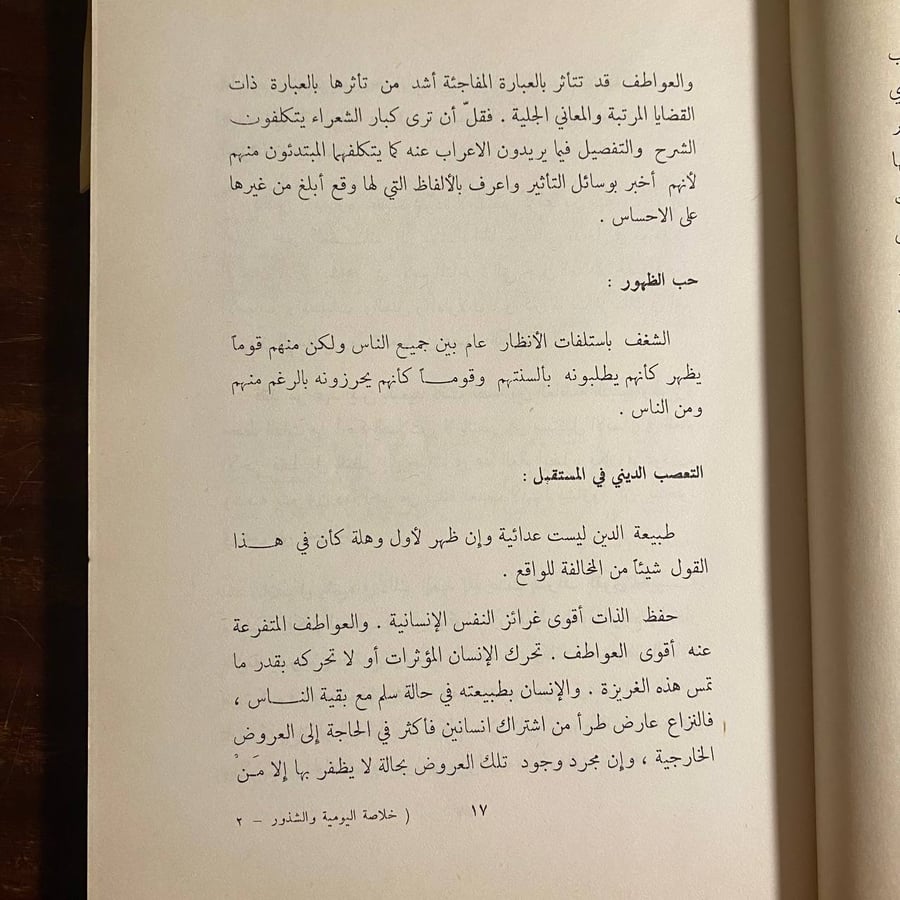 والعواطف قد تتأثر بالعبارة المفاجئة أشد من تأثرها بالعبارة ذات
القضايا المرتبة والمعاني الجلية . فقلّ أن ترى كبار الشعراء يتكلفون
الشرح والتفصيل فيما يريدون الاعراب عنه كما يتكلفهما المبتدئون منهم
لأنهم أخبر بوسائل التأثير واعرف بالألفاظ التي لها وقع أبلغ من غيرها
على الاحساس .
حب الظهور :
الشغف باستلفات الأنظار عام بين جميع الناس ولكن منهم قوماً
يظهر كأنهم يطلبونه بألسنتهم وقوماً كأنهم يحرزونه بالرغم منهم
ومن الناس .
التعصب الديني في المستقبل :
طبيعة الدين ليست عدائية وإن ظهر لأول وهلة كأن في هذا
القول شيئاً من المخالفة للواقع .
حفظ الذات أقوى غرائز النفس الإنسانية . والعواطف المتفرعة
عنه أقوى العواطف . تحرك الإنسان المؤثرات أو لا تحركه بقدر ما
تمس هذه الغريزة . والإنسان بطبيعته في حالة سلم مع بقية الناس ،
فالنزاع عارض طرأ من اشتراك انسانين فأكثر في الحاجة إلى العروض
الخارجية ، وإن مجرد وجود تلك العروض بحالة لا يظفر بها إلا مَنْ
١٧
( خلاصة اليومية والشذور – ٢